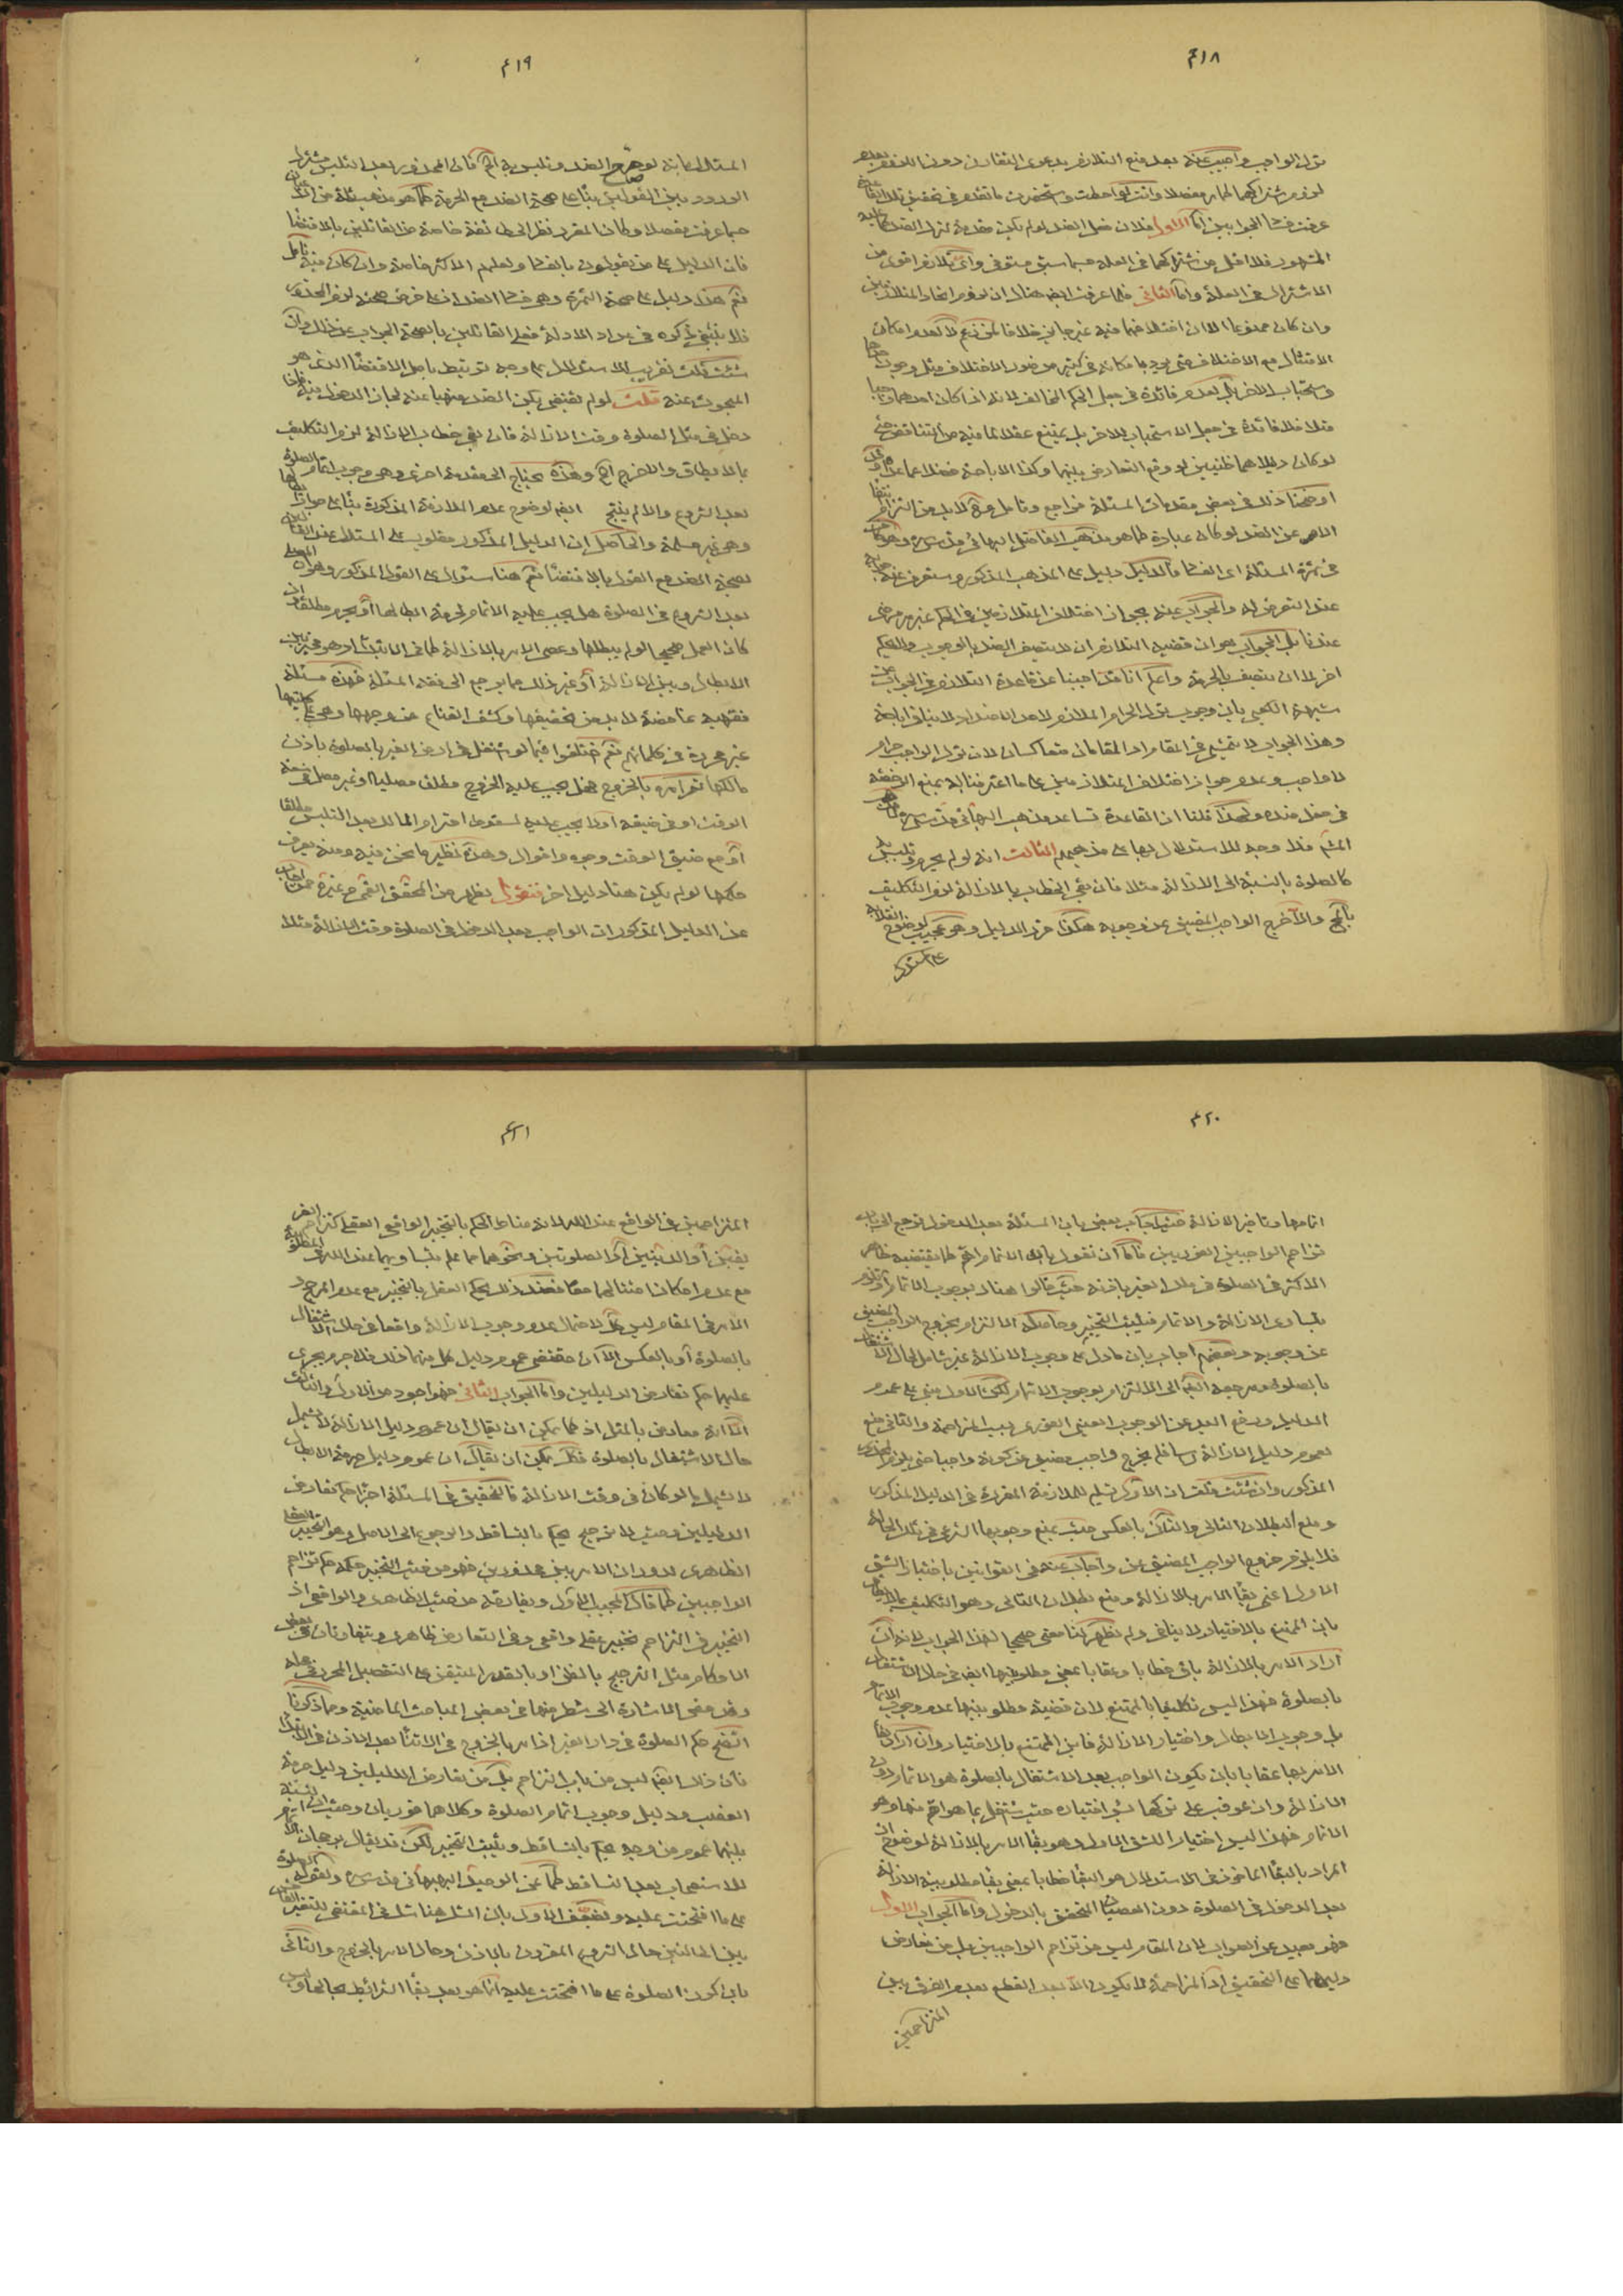 ٤١٨
ترك الواجب واجيب عنه بعد منع التلازم بدعوى التقارن دون اللزوم بعدم
لزوم اشتراكهما لما مر مفصلا وانت لو احطت واستحضرت ما تقدم في تحقيق تلك المقامين
عرفت فساد الجوابين اما الاول فلان فعل الضد لو لم يكن مقدمة لترك الضد كما عليه
المشهور فلا اقل من اشتراكهما في العلة حسبما سبق مستوفى واى تلازم اقوى من
الاشتراك في العلة واما الثاني فلما عرفت ايضا هناك ان لزوم اتحاد المتلازمين
وان كان ممنوعا الا ان اختلافهما فيه غير جايز خلافا لمن زعم لا لعدم امكان
الامتثال مع الاختلاف حتى يوجد ما مكانه في كثير من صور الاختلاف مثل وجوب احدهما
واستحباب الاخر بل لعدم فائدة في جعل الحكم المخالف لانه اذا كان احدهما واجبا
مثلا فلا فائدة في جعل الاستحباب للاخر بل يمتنع عقلا لما فيه من التناقض حتى
لو كان دليلاهما ظنيين لوقع التعارض بينهما وكذا الاباحة فضلا عما عداهما وقد
اوضحنا ذلك في بعض مقدمات المسئلة فراجع وتامل
الامر عن الضد لو كان عبادة كما هو مذهب الفاضل البهائي قدس سره وهو كاف
في ثمرة المسئلة اى الفساد فالدليل دليل على المذهب المذكور وستعرف عنه جوابه
عند التعرض له والجواب عنه بجواز اختلاف المتلازمين في الحكم غير مرضى
عندنا بل الجواب هو ان قضية التلازم ان لا يتصف الضد بالوجوب او الحكم
اخر لا ان يتصف بالحرمة واعلم انا قد اجبنا عن قاعدة التلازم في الجواب عن
شبهة الكعبي بان وجوب ترك الحرام الملازم لاحد الاضداد لا ينافي اباحته
وهذا الجواب لا يتمشى في المقام اذ المقامان متعاكسان لان ترك الواجب حرام
لا واجب وعدم جواز اختلاف المتلازمين على ما اعترفنا به يمنع الرخصة
في فعل ضده ولهذا قلنا ان القاعدة تساعد مذهب البهائي قدس سره
المشهور فلا وجه للاستدلال بها على مذهبهم الثالث انه لو لم يحرم وتلبس به
كالصلوة بالنسبة الى الازالة مثلا فان بقى الخطاب بالازالة لزم التكليف
بالمحال والا خرج الواجب المضيق عن وجوبه هكذا قرر الدليل وهو عجيب لوضوح انقلابه
على المستدل
٤١٩
المستدل لانه لو صح الضد وتلبس به ايضا كان المحذور بعد التلبس مشترك
الورود بين القولين بناء على صحة الضد مع الحرمة كما هو مذهب ثلة من القائلين
حسبما عرفت مفصلا وكان المقرر نظر الى خصوص طائفة خاصة من القائلين بالاقتضاء
فان الدليل على من يقولون بالفساد ولعلهم الاكثر خاصة وان كان فيه تامل
نعم هذا دليل على صحة الثمرة وهو فساد الضد اذ على فرض صحته لزم المحذور
فلا ينبغي ذكره في عداد الادلة فعلى القائلين بالصحة الجواب عن ذلك وان
شئت قلت تقريب الاستدلال على وجه يرتبط باصل الاقتضاء الذي هو
المبحوث عنه قلت لو لم يقتض يكن الضد منهيا عنه لجاز الدخول فيه فاذا
دخل في مثل الصلوة وقت الازالة فان بقى خطاب الازالة لزم التكليف
بما لا يطاق والا خرج الخ وهذه يحتاج الى مقدمة اخرى وهو وجوب اتمام الصلوة
بعد الشروع والا لم ينتج ايضا لوضوح عدم الملازمة المذكورة بناء على جواز ابطالها
وهي غير مسلمة والحاصل ان الدليل المذكور مقلوب على المستدل عند القائلين
بصحة الضد مع القول بالاقتضاء ثم هنا سئوال على القول المذكور وهو انه
بعد الشروع في الصلوة هل يجب عليه الاتمام لحرمة ابطالها او يحرم مطلقا وان
كان العمل صحيحا لو لم يبطلها وعصى الامر بالازالة كما في الابتداء او هو مخير بين
الابطال وبين الازالة او غير ذلك مما يرجع الى فقه المسئلة فهذه مسئلة
فقهية غامضة لا بد من تحقيقها وكشف القناع عن وجهها وهي بكليتها
غير محررة في كلماتهم نعم اختلفوا فيما لو اشتغل في ارض الغير بالصلوة باذن
مالكها ثم امره بالخروج فهل يجب عليه الخروج مطلقا مصليا او غير مصل في سعة
الوقت او في ضيقه او لا يجب عليه لسقوط احترام المال بعد التلبس مطلقا
او مع ضيق الوقت وجوه واقوال وهذه نظير ما نحن فيه ومنه يعرف
حكمها لو لم يكن هنا دليل اخر فنقول يظهر من المحقق القمي وغيره ممن اجاب
عن الدليل المذكور ان الواجب بعد الدخول في الصلوة وقت الازالة مثلا
٤٢٠
اتمامها وتاخير الازالة حيث اجاب بعض بان المسئلة بعد الدخول ترجع الى باب
تزاحم الواجبين الفوريين فاما ان نقول بان الاتمام اهم كما يقتضيه ظاهر
الاكثر في الصلوة في ملك الغير باذنه حيث قالوا هناك بوجوب الاتمام او نقول
بتساوى الازالة والاتمام فيثبت التخيير وحاصله الالتزام بخروج الواجب المضيق
عن وجوبه وبعضهم اجاب بان ما دل على وجوب الازالة غير شامل لحال الاشتغال
بالصلوة ومرجعه ايضا الى الالتزام بوجوب الاتمام لكن الاول مبني على عموم
الدليل ورفع اليد عن الوجوب العيني الفوري بسبب المزاحمة والثاني منع
لعموم دليل الازالة راسا فلم يخرج واجب مضيق عن كونه واجبا حتى يلزم المحذور
المذكور وان شئت قلت ان الاول تسليم للملازمة المقررة في الدليل المذكور
ومنع لبطلان التالي والثاني بالعكس حيث يمنع وجوبها الشرعي في تلك الحالة
فلا يلزم خروج الواجب المضيق عن واجاب عنه في القوانين باختيار الشق
الاول اعني بقاء الامر بالازالة ومنع بطلان التالي وهو التكليف بما لا يطاق
بان الممتنع بالاختيار لا ينافي ولم يظهر لنا معنى صحيح لهذا الجواب لانه ان
اراد الامر بالازالة باق خطابا وعقابا بمعنى مطلوبيتها ايضا في حال الاشتغال
بالصلوة فهذا ليس تكليفا بالممتنع لان قضية مطلوبيتها عدم وجوب الاتمام
بل وجوب الابطال واختيار الازالة فاين الممتنع بالاختيار وان اراد بقاء
الامر بها عقابا بان يكون الواجب بعد الاشتغال بالصلوة هو الاتمام دون
الازالة وان عوقب على تركها بسوء اختياره حيث اشتغل بما هو اهم منها وهو
الاتمام فهذا ليس اختيار الشق الاول وهو بقاء الامر بالازالة لوضوح ان
المراد بالبقاء الماخوذ في الاستدلال هو البقاء خطابا بمعنى بقاء مطلوبية الازالة
بعد الدخول في الصلوة دون العصيان المتحقق بالدخول واما الجواب الاول
فهو بعيد عن الصواب لان المقام ليس من تزاحم الواجبين بل من تعارض
دليلهما على التحقيق اذ المزاحمة لا يكون الا بعد القطع بعدم الفرق بين
المتزاحمين
٤٢١
المتزاحمين في الواقع عند الله لانه مناط الحكم بالتخيير الواقعي العقلي كتزاحم الغر
يقين او الدينين او الصلوتين ونحوهما مما علم بتساويهما عند الله في المطلوبية
مع عدم امكان امتثالهما معا فعند ذلك يحكم العقل بالتخيير مع عدم المرجح
الامر في المقام ليس كك لاحتمال عدم وجوب الازالة واقعا في حال الاشتغال
بالصلوة او بالعكس الا ان مقتضى عموم دليل كل منهما ذلك فلا جرم يجرى
عليهما حكم تعارض الدليلين واما الجواب الثاني فهو اجود من الاول والثالث
الا انه معارض بالمثل اذ كما يمكن ان يقال ان عموم دليل الازالة لا يشمل
حال الاشتغال بالصلوة فكك يمكن ان يقال ان عموم دليل حرمة الابطال
لا يشمل ما لو كان في وقت الازالة فالتحقيق في المسئلة اجراء حكم تعارض
الدليلين وحيث لا ترجيح يحكم بالتساقط والرجوع الى الاصل وهو التخيير العقلي
الظاهري لدوران الامر بين محذورين فهو من حيث التخيير حكمه حكم تزاحم
الواجبين كما قال المجيب الاول ويفارقه من حيث الظاهري والواقعي اذ
التخيير في التزاحم تخيير عقلي واقعي وفي التعارض ظاهري ويتفاوتان في بعض
الاحكام مثل الترجيح بالظن او بالقدر المتيقن على التفصيل المحرر في محله
وقد مضى الاشارة الى شطر منها في بعض المباحث الماضية ومما ذكرنا
اتضح حكم الصلوة في دار الغير اذا امر بالخروج في الاثناء بعد الاذن في الابتداء
فان ذلك ايضا ليس من باب التزاحم بل من تعارض الدليلين دليل حرمة
الغصب ودليل وجوب اتمام الصلوة وكلاهما فوريان وحيث ان النسبة
بينهما عموم من وجه يحكم بالتساقط ويثبت التخيير لكن قد يقال برجحان الاتمام
للاستصحاب بعد التساقط كما عن الوحيد البهبهاني قدس سره ولقوله الصلوة
على ما افتتحت عليه ويضعف الاول بان الشك هنا شك في المقتضى للتغير
بين الحالتين حال الشروع المقرون بالاذن وحال الامر بالخروج والثاني
بان كون الصلوة على ما افتتحت عليه انما هو بعد بقاء الشرائط بحالها وليس